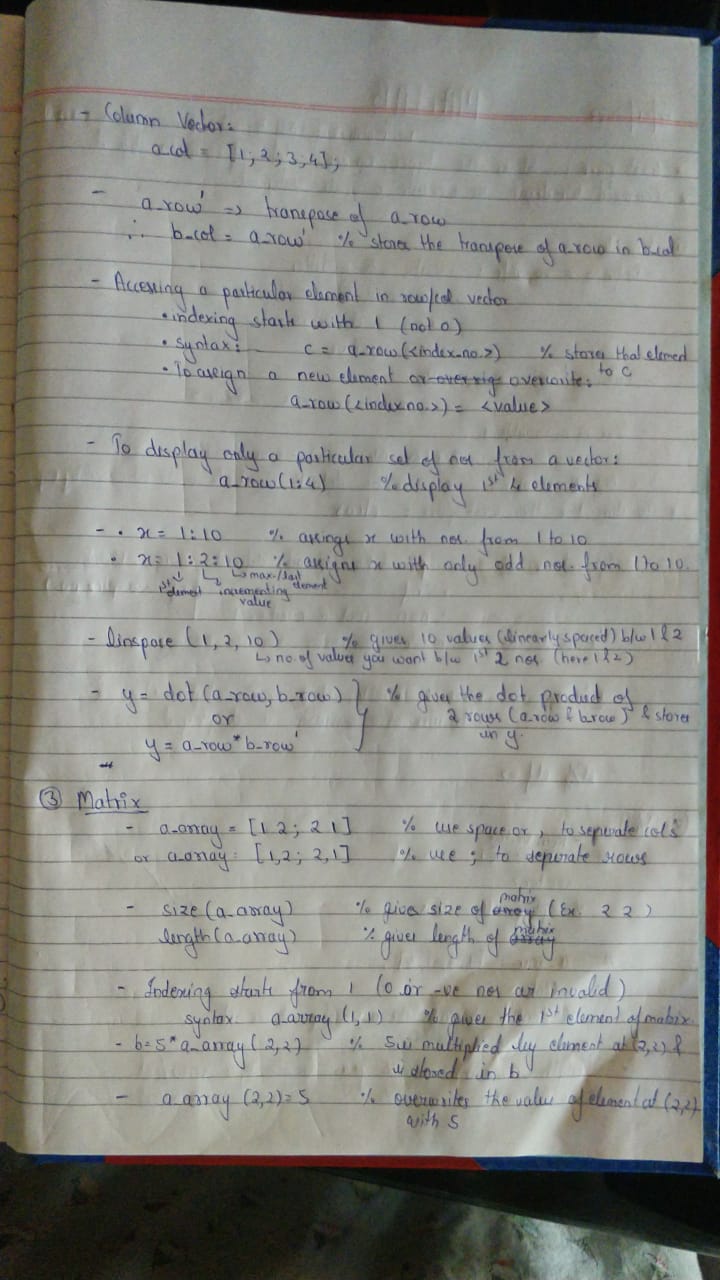 - Column Vector:
a_col = [1;2;3;4];
- a_row' => transpose of a_row
∴ b_col = a_row' % stores the transpose of a_row in b_col
- Accessing a particular element in row/col vector
• indexing starts with 1 (not 0)
• Syntax: c = a_row(<index_no.>) % stores that element to c
• To assign a new element or overwrite:
a_row(<index no.>) = <value>
- To display only a particular set of nos from a vector:
a_row(1:4) % display 1st 4 elements
- • x = 1:10 % assigns x with nos. from 1 to 10
• x = 1:2:10 % assigns x with only odd nos. from 1 to 10.
↳ max./last element
1st element incrementing value
- linspace (1, 2, 10) % gives 10 values (linearly spaced) b/w 1 & 2
↳ no. of values you want b/w 1st 2 nos (here 1 & 2)
- y = dot (a_row, b_row) } % gives the dot product of
or 2 rows (a_row & b_row) & stores
y = a_row * b_row' in y.
③ Matrix
- a_array = [1 2; 2 1] % use space or , to seperate cols
or a_array = [1,2; 2,1] % use ; to seperate rows
- size (a_array) % gives size of matrix (Ex. 2 2)
length (a_array) % gives length of matrix
- Indexing starts from 1 (0 or -ve nos are invalid)
syntax a_array (1,1) % gives the 1st element of matrix.
- b = 5 * a_array (2,2) % 5 is multiplied by element at (2,2) &
is stored in b
- a_array (2,2) = 5 % overwrites the value of element at (2,2)
with 5